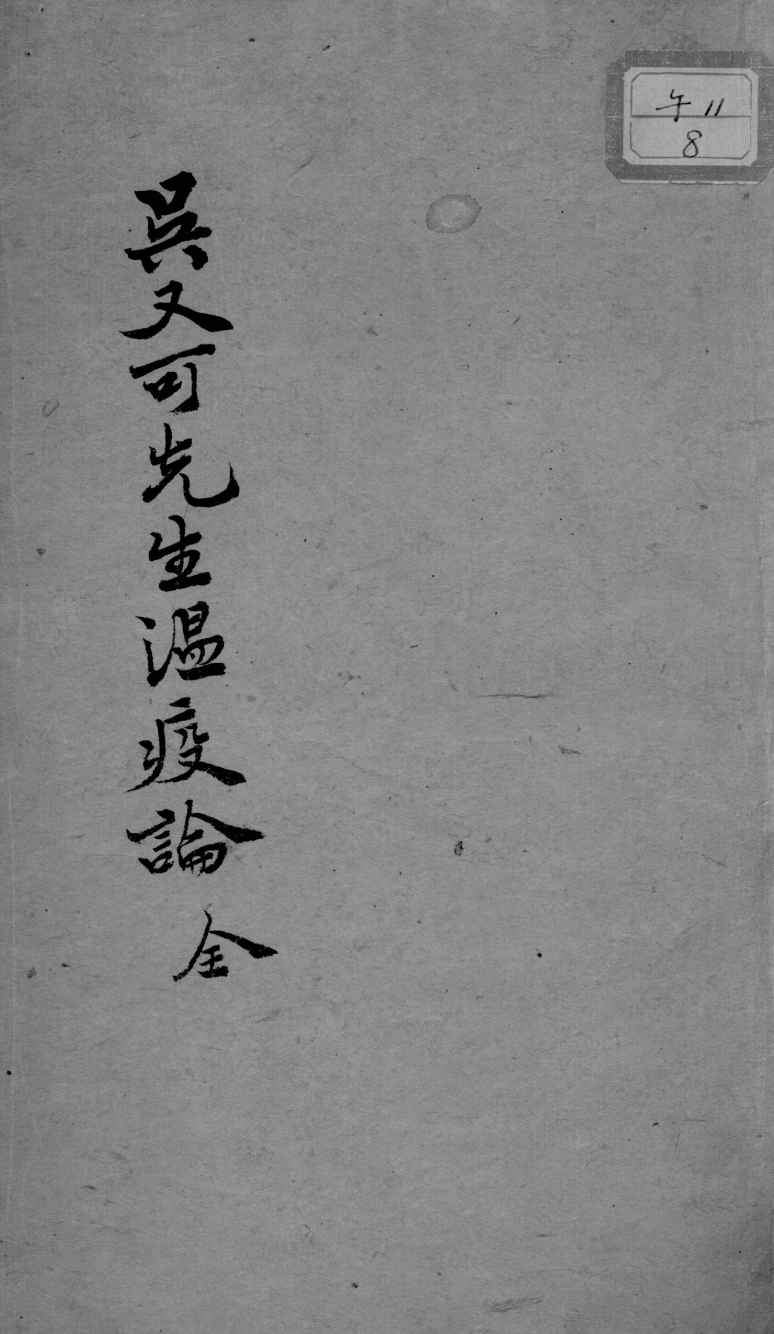 午 11
8
吳又可先生温疫論 全